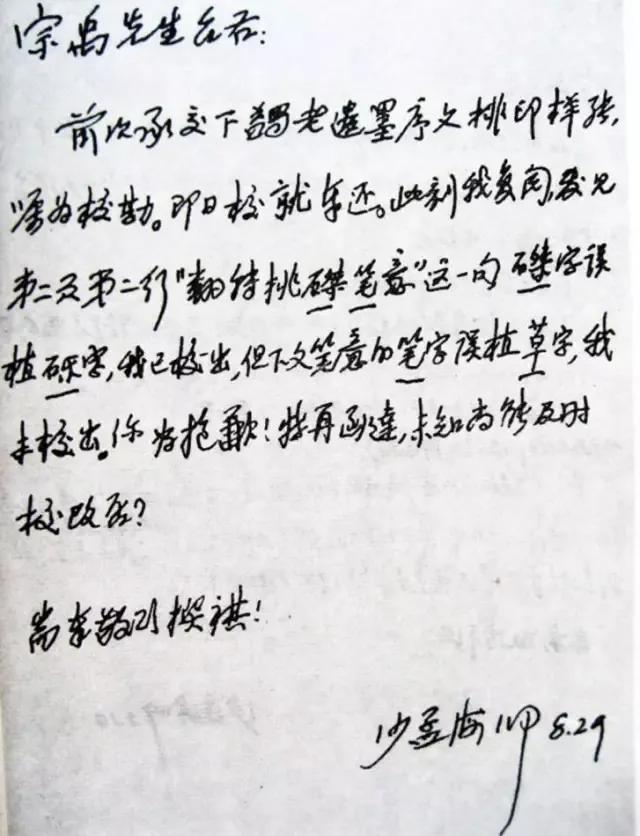 宗禹先生台右:
前次承交下蠲老遗墨序文排印样张,
嘱为校勘。即日校就奉还。此刻我复阅,发见
第二页第二行"翻转挑磔笔意"这一句磔字误
植砾字,我已校出,但下文笔意的笔字误植草字,我
未校出。深为抱歉!特再函达,未知尚能及时
校改否?
耑奉敬颂撰祺!
沙孟海 8.29